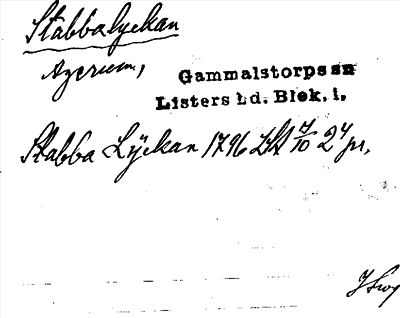 Stabbalyckan
Agerum,
Gammalstorps sn
Listers hd. Blek. l.
Stabba Lyckan 1796 LSt 7/10 24 pr.